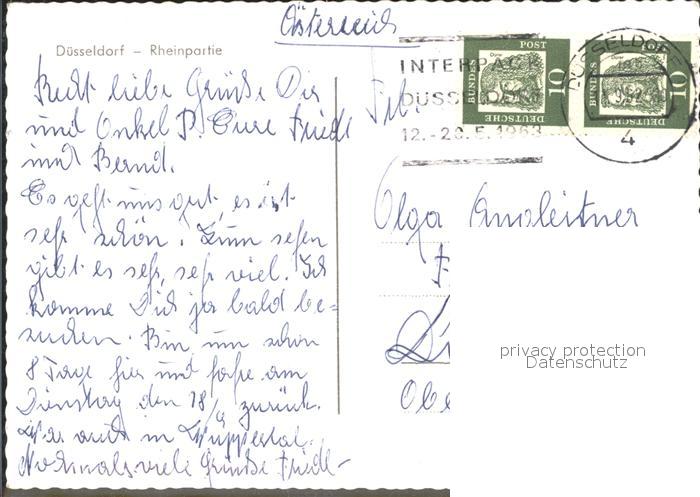 Österreich
Düsseldorf – Rheinpartie
Recht liebe Grüße Dir
und Onkel P. Eure Friedl
und Bernd.
Es geht uns gut, es ist
sehr schön. Zum sehen
gibt es sehr, sehr viel. Ich
komme Dich ja bald be=
suchen. Bin nun schon
8 Tage hier und fahre am
Dienstag den 18/ zurück.
War auch in Wuppertal.
Nochmals viele Grüße Friedl-
INTERPACK
DÜSS
12.-20.5.1963
DEUTSCHE BUNDES POST
10
Dürer
DEUTSCHE BUNDES
10
Dürer
DÜSSELDORF
4
Frl.
Olga
Obe
privacy protection
Datenschutz